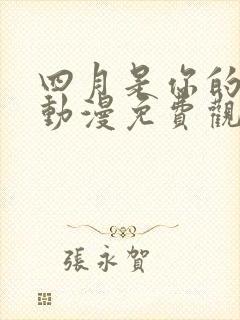 四月是你的
動漫免費觀
張永賀